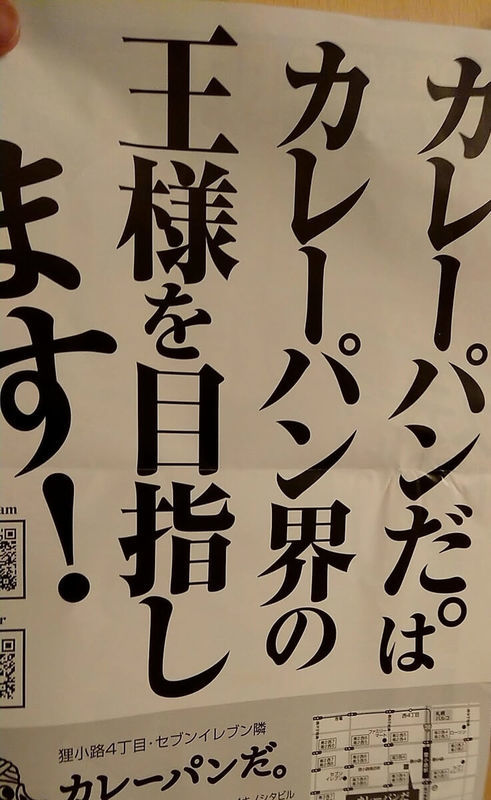 カレーパンだ。は
カレーパン界の
王様を目指し
ます!
狸小路4丁目・セブンイレブン隣
カレーパンだ。
西4丁目